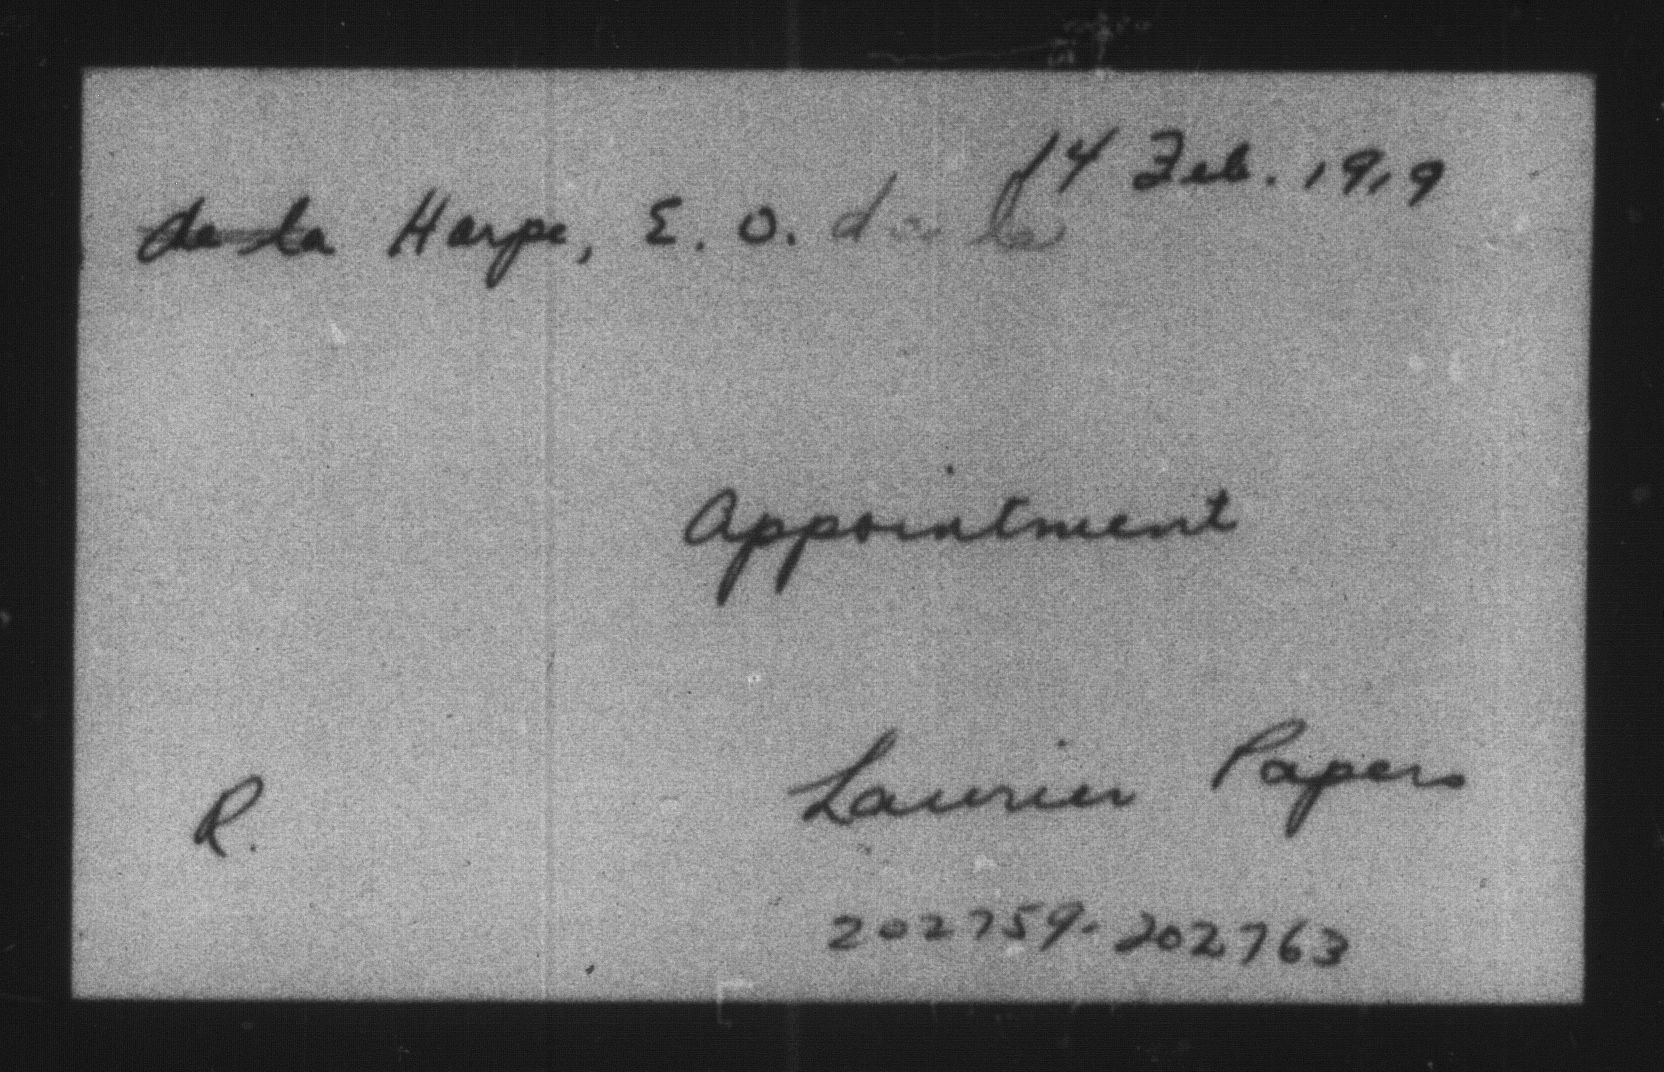 14 Feb. 1919
de la Harpe, E. O. de la
Appointment
Laurier Papers
R.
202759-202763